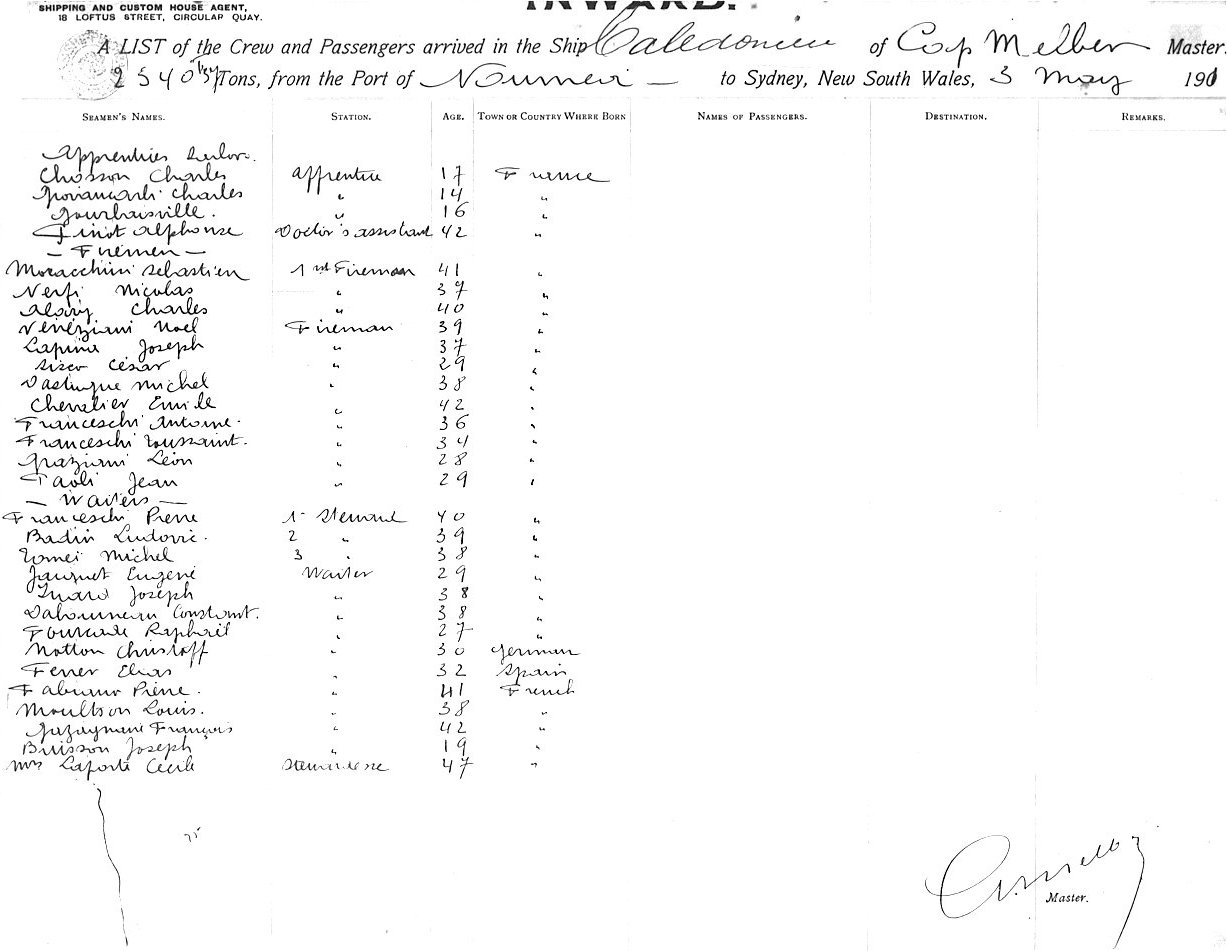 SHIPPING AND CUSTOM HOUSE AGENT,
18 LOFTUS STREET, CIRCULAR QUAY.
INWARD.
A LIST of the Crew and Passengers arrived in the Ship Caledonien of Cap Melber Master.
2540 Tons, from the Port of Noumea to Sydney, New South Wales, 3 May 1901
SEAMEN'S NAMES. STATION. AGE. TOWN OR COUNTRY WHERE BORN NAMES OF PASSENGERS. DESTINATION. REMARKS.
Apprenties
Chosson Charles apprentice 17 France
Charles " 14 "
" 16 "
Finot Alphonse Doctor's assistant 42 "
— Firemen —
Moracchini Sebastien 1st Fireman 41 "
Nerfi Nicolas " 39 "
Charles " 40 "
Veneziani Noel Fireman 39 "
Lapina Joseph " 37 "
Sisco César " 29 "
Dastugue Michel " 38 "
Chevalier Emile " 42 "
Franceschi Antoine. " 36 "
Franceschi Toussaint. " 34 "
Graziani Léon " 28 "
Paoli Jean " 29 "
— Waiters —
Franceschi Pierre 1 Steward 40 "
Badin Ludovic. 2 " 39 "
Tomei Michel 3 " 38 "
Jauquet Eugene Waiter 29 "
Joseph " 38 "
Dabonneau Constant. " 38 "
Fourcade Raphaël " 27 "
Notton Christoff " 30 German
Ferrer Elias " 32 Spain
Fabiano Pierre. " 41 French
Moultson Louis. " 38 "
François " 42 "
Buisson Joseph " 19 "
Mrs Laporte Cecile Stewardesse 47 "
75
Master.